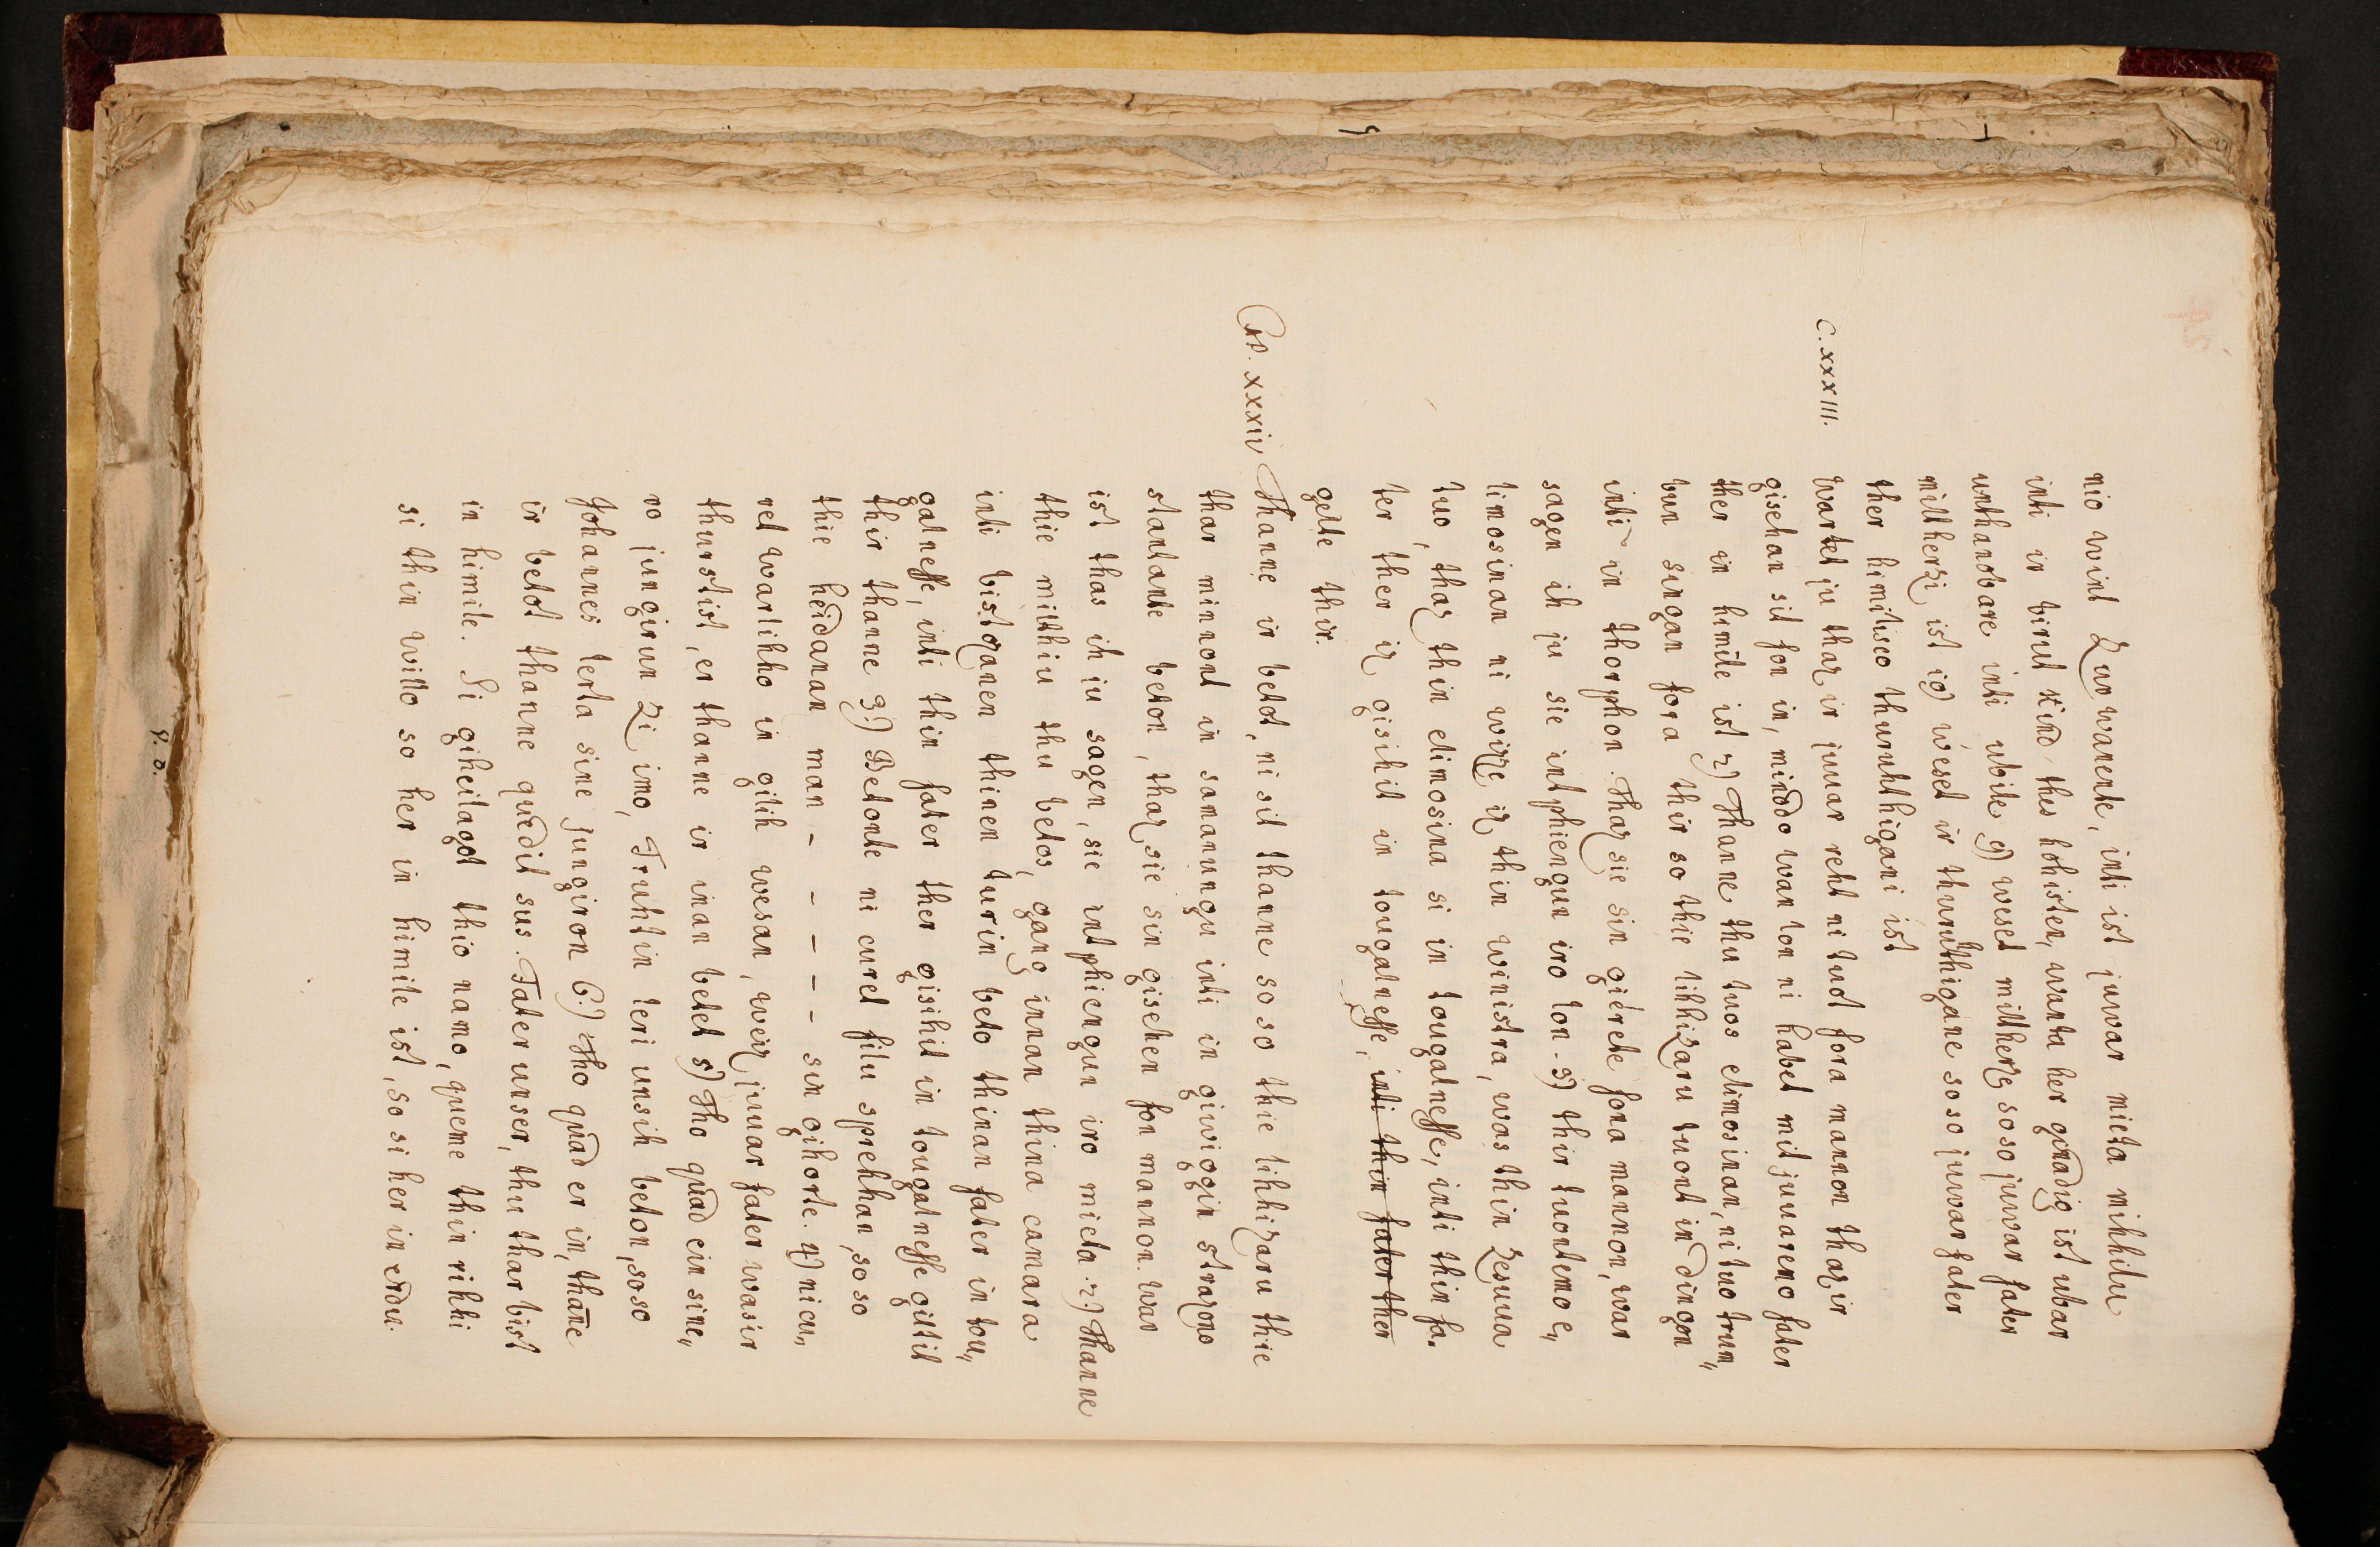 nio wint Zuo wanente, inti ist juwar mieta mihhilu
inti ir birut kind thes hohisten, wanta her gnadig ist ubar
unthanobare inti ubile 9) weset miltherz soso juwar fater
miltherzi ist 10) weset ir thuruhthigane soso juwar fater
ther himilisco thuruhthigani ist
C. XXXIII. Wartet ju thaz ir juuar reht ni tuot fora mannon thaz ir
gisehan sit fon in, minddo wan lon ni habet mit juuareno fater
ther in himile ist 2) Thanne thu tuos elimosinan, ni tuo trum„
bun singan fora thir so thie lihhizaru tuont in dingon
inti in thorphon. Thaz sie sin gierete fora mannon, war
sagen ih ju sie intphiengun iro lon. 3) thir tuontemo e„
limosinan ni wizze iz thin winistra, was thin zesuua
tuo, thaz thin elimosina si in tougalnesse, inti thin fa„
ter, ther iz gisihit in tougalnesse, inti thin fater ther
gelte thir.
Cap. XXXIV Thanne ir betot, ni sit thanne so so thie lihhizaru thie
thar minnont in samanungu inti in giwiggin strazono
stantante beton, thaz sie sin gisehen fon mannon. War
ist thas ih iu sagen, sie intphiengun iro mieta. 2.) Thanne
thie mitthiu thu betos, gang innan thina camara
inti bistozanen thinen turin beto thinan fater in tou„
galnesse, inti thin fater ther gisihit in tougalnesse giltit
thir thanne 3.) Betonte ni curet filu sprehhan, so so
thie heidanan man - - - - - sin gihorte. 4) nicu„
ret warlihho in gilih wesan, weiz juuar fater wasir
thurstist, er thanne ir inan betet 5) Tho quad ein sine„
ro jungirun Zi imo, Truhtin leri unsih beton, soso
Johannes lerta sine jungiron 6.) Tho quad er in, thañe
ir betot thanne quedit sus. Fater unser, thu thar bist
in himile. Si giheilagot thio namo, queme thin rihhi
si thin willo so her in himile ist, so si her in erdu.